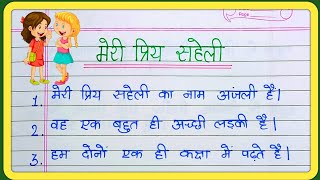 मेरी प्रिय सहेली
1. मेरी प्रिय सहेली का नाम अंजली है।
2. वह एक बहुत ही अच्छी लड़की है।
3. हम दोनों एक ही कक्षा में पढ़ते हैं।